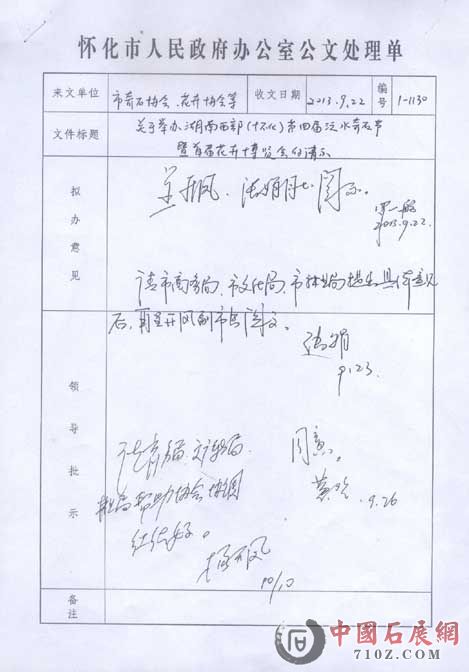 怀化市人民政府办公室公文处理单
来文单位 市奇石协会、花卉协会等 收文日期 2013.9.22 编号 1-1130
文件标题 关于举办湖南西部(怀化)第四届沅水奇石节
暨首届花卉博览会的请示
拟办意见
呈开凤、
阅示。
2013.9.22.
请市商务局、市文化局、市林业局提出具体意见
后,再呈开凤副市长阅文。
9.23.
领导批示
同意。
9.26
林业局帮助协会协调
杨开凤
10/10
备注
中國石展網
7107.COM